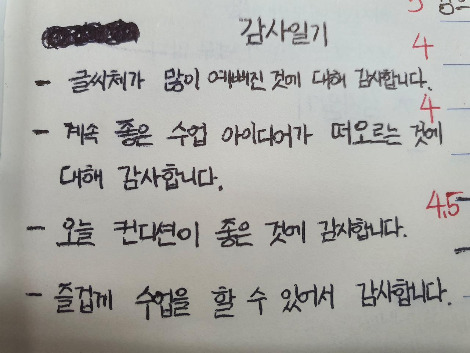 감사일기
4
- 글씨체가 많이 예뻐진 것에 대해 감사합니다.
4
- 계속 좋은 수업 아이디어가 떠오르는 것에
대해 감사합니다.
4.5
- 오늘 컨디션이 좋은 것에 감사합니다.
- 즐겁게 수업을 할 수 있어서 감사합니다.